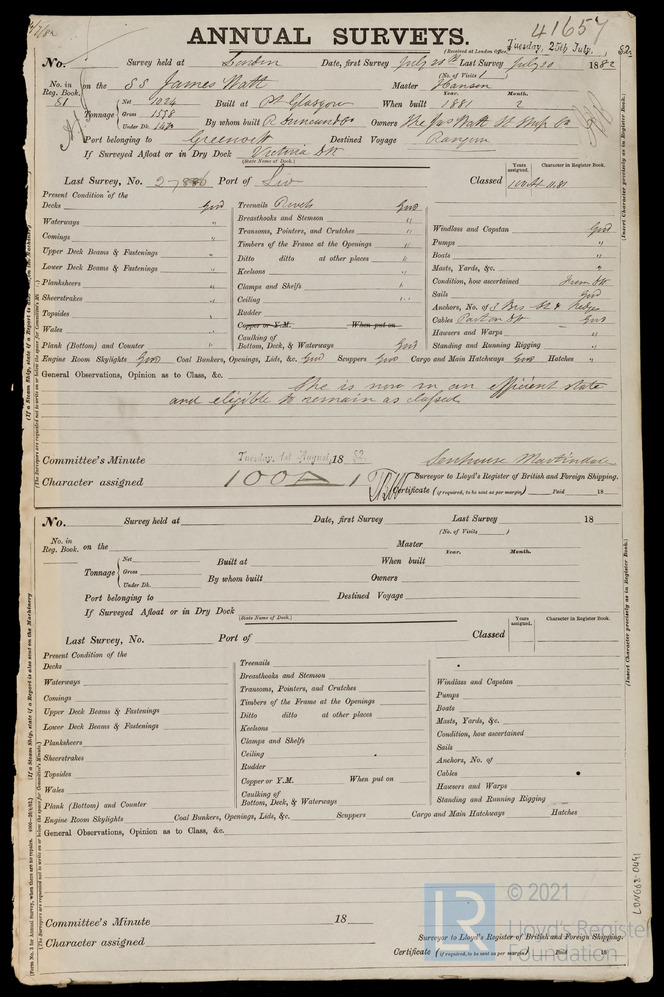 41657
ANNUAL SURVEYS.
(Received at London Office, Tuesday, 25th July, 82.
No. Survey held at London Date, first Survey July 20th Last Survey July 20 1882
(No. of Visits 1)
No. in Reg. Book. 51 on the SS James Watt Master Hansen
Year. Month.
Tonnage Net 1024 Built at Pt Glasgow When built 1881 2
Gross 1558
Under Dk. By whom built R. Duncan & Co Owners The Jas Watt St Ship Co
Port belonging to Greenock Destined Voyage
If Surveyed Afloat or in Dry Dock Victoria Dk
(State Name of Dock.)
Last Survey, No. Port of Liv Classed 100A1 11.81
Years assigned. Character in Register Book.
Present Condition of the
Decks Good
Waterways "
Comings "
Upper Deck Beams & Fastenings "
Lower Deck Beams & Fastenings "
Planksheers "
Sheerstrakes "
Topsides "
Wales "
Plank (Bottom) and Counter "
Treenails Rivets Good
Breasthooks and Stemson "
Transoms, Pointers, and Crutches "
Timbers of the Frame at the Openings "
Ditto ditto at other places "
Keelsons "
Clamps and Shelfs "
Ceiling "
Rudder
Copper or Y.M. When put on
Caulking of Bottom, Deck, & Waterways Good
Windlass and Capstan Good
Pumps "
Boats "
Masts, Yards, &c. "
Condition, how ascertained From Dk
Sails Good
Anchors, No. of 3 Brs St & Kedges
Cables Part on Dk Good
Hawsers and Warps "
Standing and Running Rigging "
Engine Room Skylights Good Coal Bunkers, Openings, Lids, &c. Good Scuppers Good Cargo and Main Hatchways Good Hatches "
General Observations, Opinion as to Class, &c.
She is now in an efficient state
and eligible to remain as classed
Committee's Minute Tuesday, 1st August, 1882.
Senhouse Martindale
Character assigned 100A1
Surveyor to Lloyd's Register of British and Foreign Shipping.
Certificate (if required, to be sent as per margin) Paid 18
(Insert Character precisely as in Register Book.)
No. Survey held at Date, first Survey Last Survey 18
(No. of Visits )
No. in Reg. Book. on the Master
Year. Month.
Tonnage Net Built at When built
Gross
Under Dk. By whom built Owners
Port belonging to Destined Voyage
If Surveyed Afloat or in Dry Dock
(State Name of Dock.)
Years assigned. Character in Register Book.
Last Survey, No. Port of Classed
Present Condition of the
Decks
Waterways
Comings
Upper Deck Beams & Fastenings
Lower Deck Beams & Fastenings
Planksheers
Sheerstrakes
Topsides
Wales
Plank (Bottom) and Counter
Treenails
Breasthooks and Stemson
Transoms, Pointers, and Crutches
Timbers of the Frame at the Openings
Ditto ditto at other places
Keelsons
Clamps and Shelfs
Ceiling
Rudder
Copper or Y.M. When put on
Caulking of Bottom, Deck, & Waterways
Windlass and Capstan
Pumps
Boats
Masts, Yards, &c.
Condition, how ascertained
Sails
Anchors, No. of
Cables
Hawsers and Warps
Standing and Running Rigging
Engine Room Skylights Coal Bunkers, Openings, Lids, &c. Scuppers Cargo and Main Hatchways Hatches
General Observations, Opinion as to Class, &c.
Committee's Minute 18
Character assigned
Surveyor to Lloyd's Register of British and Foreign Shipping.
Certificate (if required, to be sent as per margin) Paid 18
(Insert Character precisely as in Register Book.)
LONG68-0491
LR © 2021
Lloyd's Register
Foundation